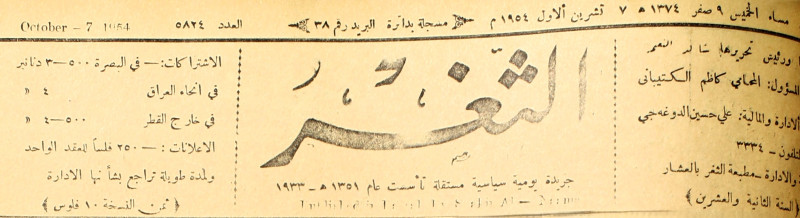 مساء الخميس ٩ صفر ١٣٧٤ هـ ٧ تشرين الأول ١٩٥٤ م
مسجلة بدائرة البريد رقم ٣٨
العدد ٥٨٢٤
October - 7 1954
ورئيس تحريرها شاكر النعمة
المسؤول: المحامي كاظم الكتيباني
الادارة والمالية: علي حسين الدوغه جي
تلفون - ٣٣٣٤
والادارة - مطبعة الثغر بالعشار
﴿السنة الثانية والعشرين﴾
الثغر
جريدة يومية سياسية مستقلة تأسست عام ١٣٥١ هـ - ١٩٣٣
الاشتراكات: — في البصرة ٥٠٠-٣ دنانير
في انحاء العراق ٤ «
في خارج القطر ٥٠٠-٤ «
الاعلانات: — ٢٥٠ فلساً للعقد الواحد
ولمدة طويلة تراجع بشأنها الادارة
﴿ثمن النسخة ١٠ فلوس﴾